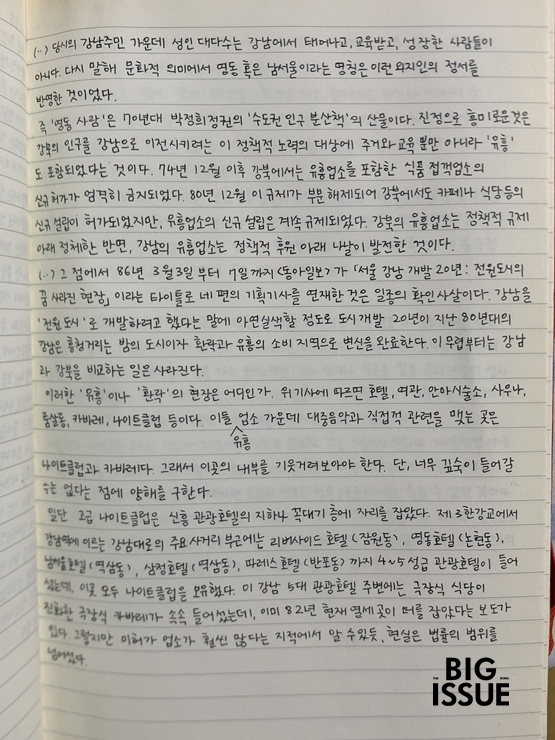 (..) 당시의 강남주민 가운데 성인 대다수는 강남에서 태어나고, 교육받고, 성장한 사람들이
아니다. 다시 말해 문화적 의미에서 영동 혹은 남서울이라는 명칭은 이런 외지인의 정서를
반영한 것이었다.
즉 '영동 사람'은 70년대 박정희정권의 '수도권 인구 분산책'의 산물이다. 진정으로 흥미로운것은
강북의 인구를 강남으로 이전시키려는 이 정책적 노력의 대상에 주거와 교육 뿐만 아니라 '유흥'
도 포함되었다는 것이다. 74년 12월 이후 강북에서는 유흥업소를 포함한 식품 접객업소의
신규 허가가 엄격히 금지되었다. 80년 12월 이 규제가 부분 해제되어 강북에서도 카페나 식당 등의
신규 설립이 허가되었지만, 유흥업소의 신규 설립은 계속 규제되었다. 강북의 유흥업소는 정책적 규제
아래 정체한 반면, 강남의 유흥업소는 정책적 후원 아래 나날이 발전한 것이다.
(..) 그 점에서 86년 3월3일 부터 7일 까지 <동아일보>가 「서울 강남 개발 20년: 전원도시의
꿈 사라진 현장」 이라는 타이틀로 네 편의 기획기사를 연재한 것은 일종의 확인사살이다. 강남을
'전원도시'로 개발하려고 했다는 말에 아연실색할 정도로 도시개발 20년이 지난 80년대의
강남은 흥청거리는 밤의 도시이자 환락과 유흥의 소비 지역으로 변신을 완료한다. 이 무렵부터는 강남
과 강북을 비교하는 일은 사라진다.
이러한 '유흥'이나 '환락'의 현장은 어디인가. 위 기사에 따르면 호텔, 여관, 안마시술소, 사우나,
룸살롱, 카바레, 나이트클럽 등이다. 이들 업소 가운데 대중음악과 직접적 관련을 맺는 곳은
유흥
나이트클럽과 카바레다. 그래서 이곳의 내부를 기웃거려보아야 한다. 단, 너무 깊숙이 들어갈
수는 없다는 점에 양해를 구한다.
일단 고급 나이트클럽은 신흥 관광호텔의 지하나 꼭대기 층에 자리를 잡았다. 제3한강교에서
강남역에 이르는 강남대로의 주요 사거리 부근에는 리버사이드 호텔 (잠원동), 영동호텔 (논현동),
남서울호텔 (역삼동), 삼정호텔 (역삼동), 파레스호텔 (반포동) 까지 4~5성급 관광호텔이 들어
섰는데, 이곳 모두 나이트클럽을 보유했다. 이 강남 5대 관광호텔 주변에는 극장식 식당이
진화한 극장식 카바레가 속속 들어섰는데, 이미 82년 현재 열세 곳이 터를 잡았다는 보도가
있다. 그렇지만 미허가 업소가 훨씬 많다는 지적에서 알 수 있듯, 현실은 법률의 범위를
넘어섰다.
THE BIG
ISSUE